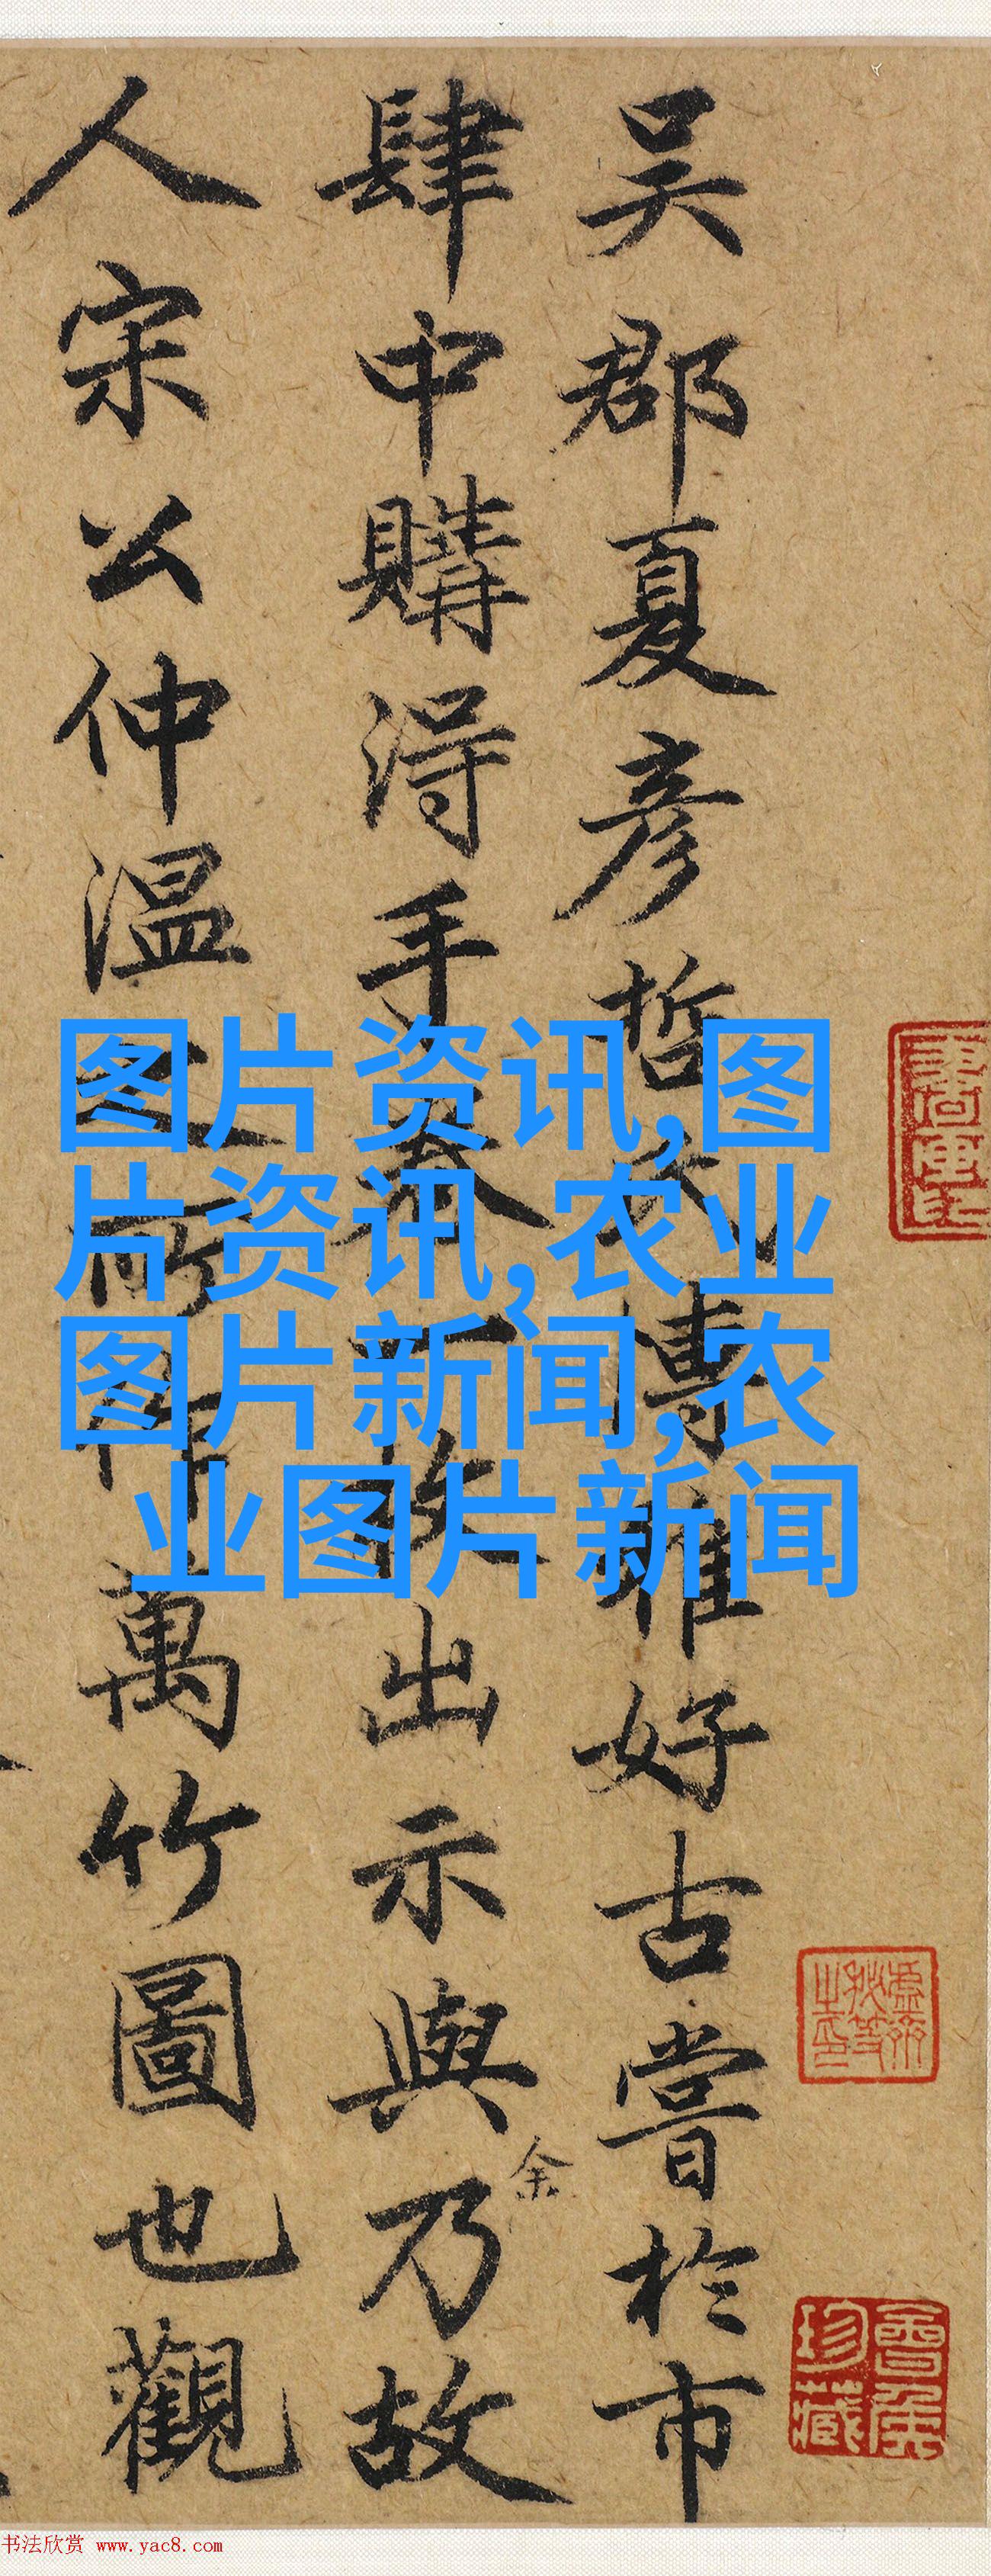 吴郡夏彦哲夫博雅好古嘗於市
肆中購得手卷一枚出示與乃故
余
人宋公仲温之所作萬竹圖也觀
图片资讯,图
片资讯,农业
图片新闻,农
业图片新闻
珍藏
书法欣赏 www.yac8.com